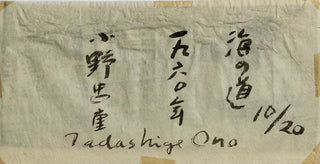 海の道
10/20
一九六〇年
小野忠重
Tadashige Ono